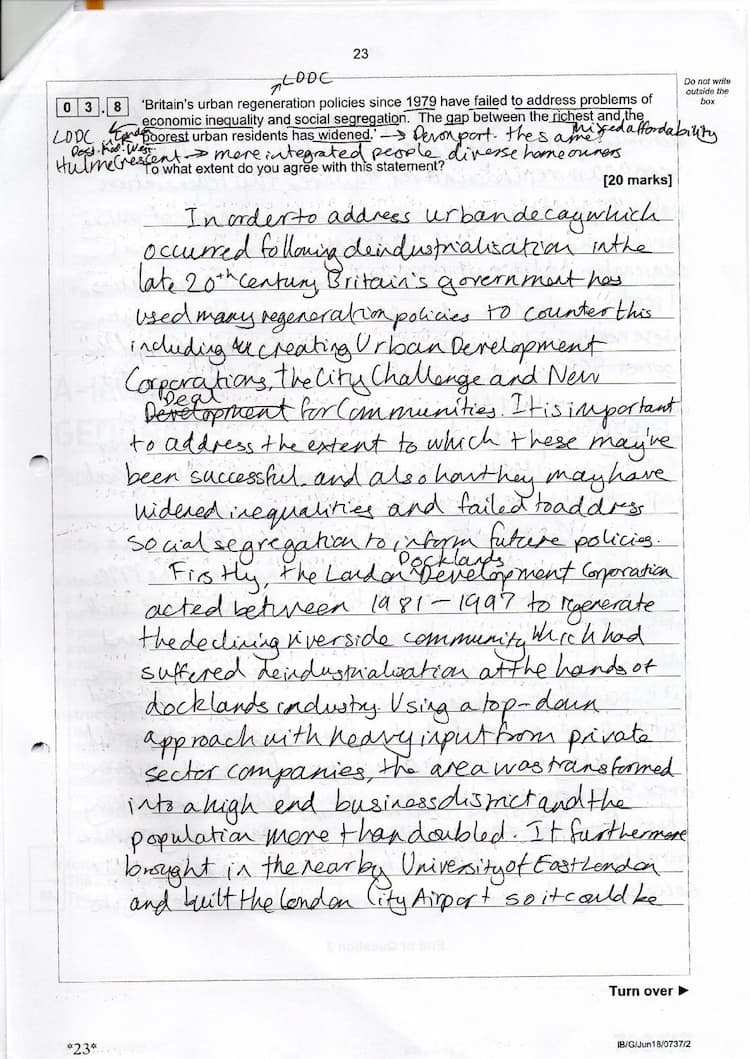 23
LDDC
Do not write
outside the
box
0 3 . 8 'Britain's urban regeneration policies since 1979 have failed to address problems of
economic inequality and social segregation. The gap between the richest and the
poorest urban residents has widened.' → Devonport. the same mixed affordability
LDDC
Hulme Crescent → more integrated people diverse homeowners
To what extent do you agree with this statement?
[20 marks]
In order to address urban decay which
occurred following deindustrialisation in the
late 20th Century, Britain's government has
used many regeneration policies to counter this
including creating Urban Development
Corporations, the City Challenge and New
Deal
Development for Communities. It is important
to address the extent to which these may've
been successful and also how they may have
widened inequalities and failed to address
social segregation to inform future policies.
Docklands
Firstly, the London Development Corporation
acted between 1981-1997 to regenerate
the declining riverside community which had
suffered deindustrialisation at the hands of
docklands industry. Using a top-down
approach with heavy input from private
sector companies, the area was transformed
into a high end business district and the
population more than doubled. It furthermore
brought in the nearby University of East London
and built the London City Airport so it could be
Turn over ►
*23*
IB/G/Jun18/0737/2